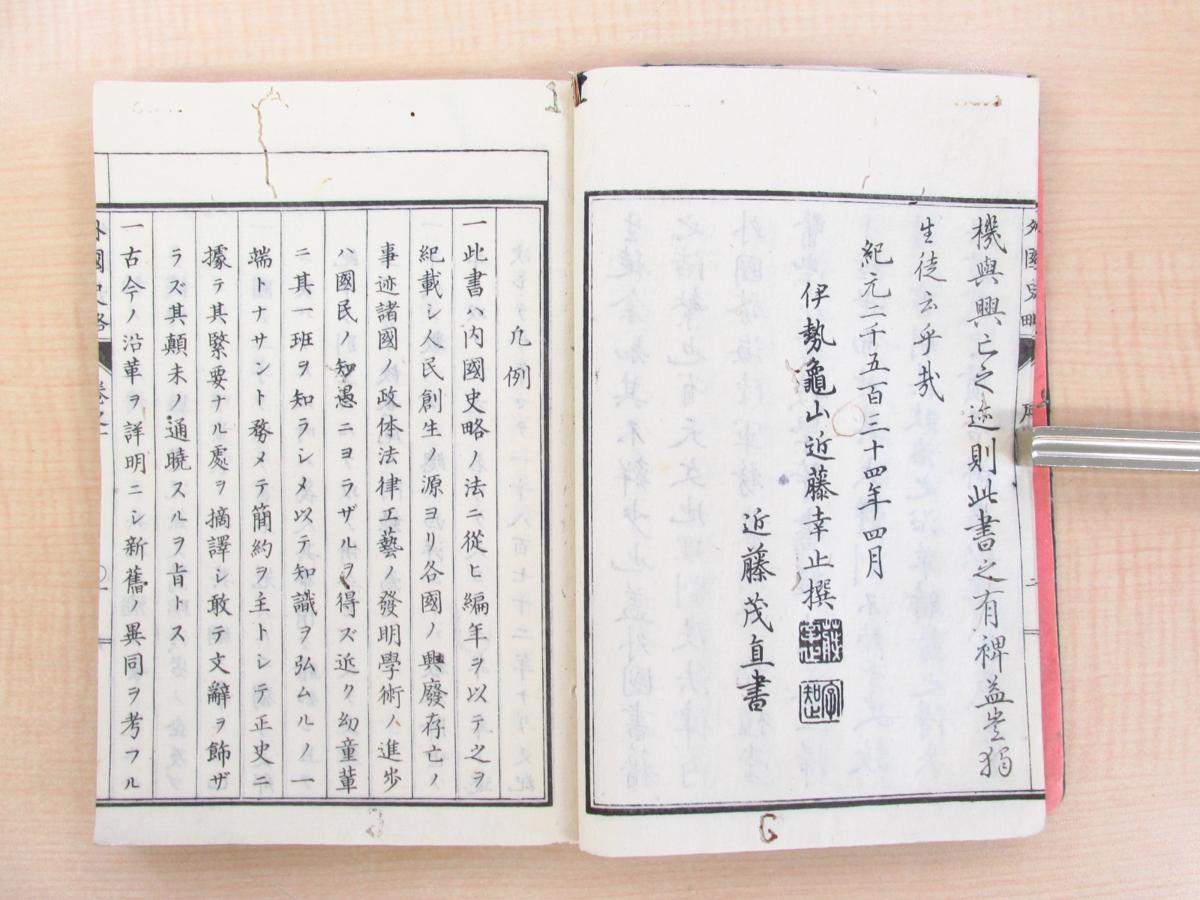 機與興亡之迹則此書之有裨益豈獨
生徒云乎哉
紀元二千五百三十四年四月
伊勢龜山近藤幸止撰
近藤茂直書
外國史略
凡例
一此書ハ内國史略ノ法ニ從ヒ編年ヲ以テ之ヲ
紀載シ人民創生ノ源ヨリ各國ノ興廢存亡ノ
事迹諸國ノ政体法律工藝ノ發明學術ノ進步
ハ國民ノ知愚ニヨラザルヲ得ズ近ク幼童輩
ニ其一班ヲ知ラシメ以テ知識ヲ弘ムルノ一
端トナサントト務メテ簡約ヲ主トシテ正史ニ
據テ其緊要ナル處ヲ摘譯シ敢テ文辭ヲ飾ザ
ラズ其顛末ノ通曉スルヲ旨トス
一古今ノ沿革ヲ詳明ニシ新舊ノ異同ヲ考フル
外國史略
卷之一